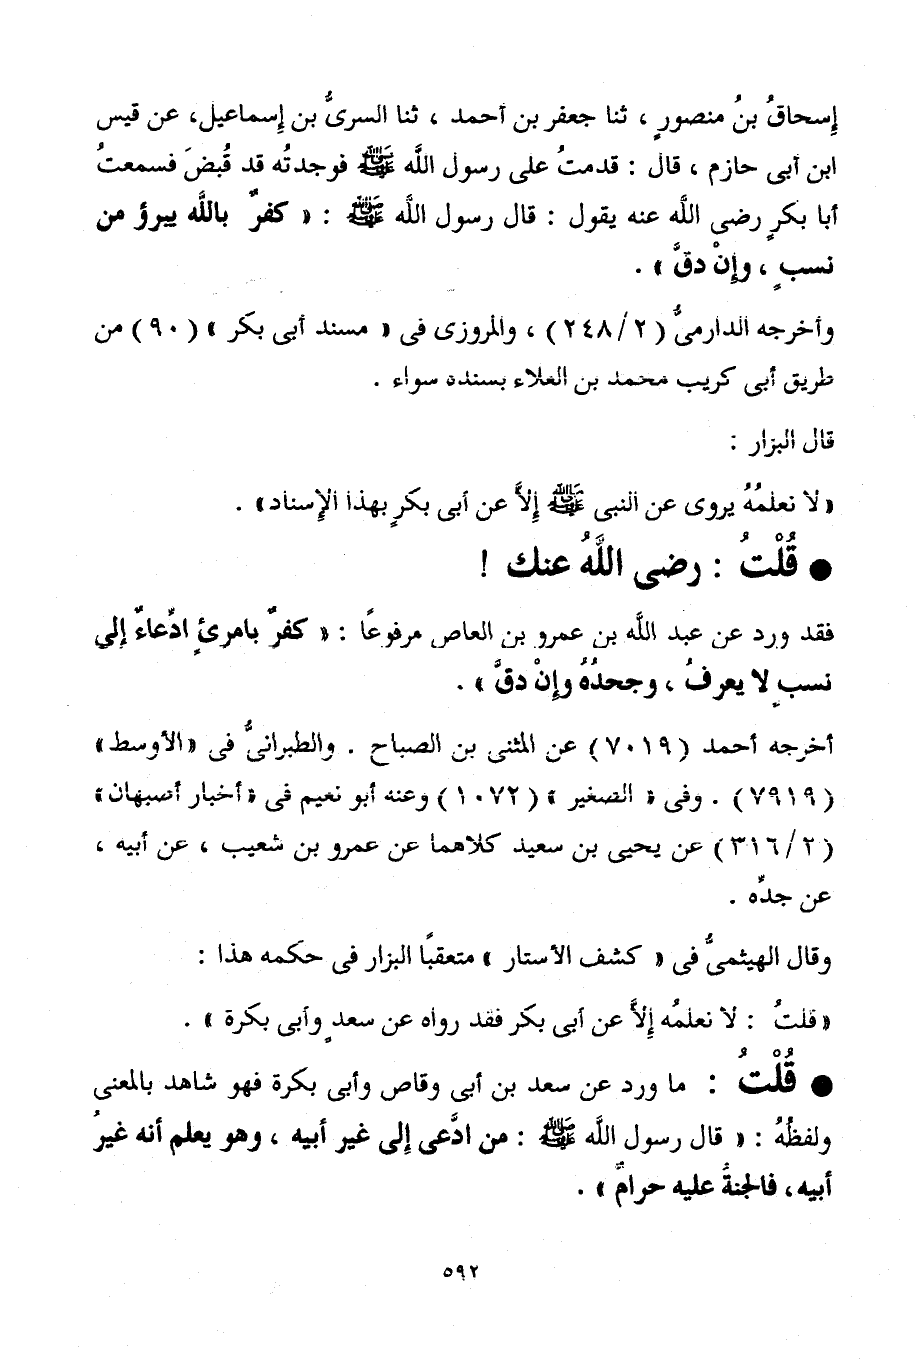 إسحاقُ بنُ منصورٍ ، ثنا جعفر بن أحمد ، ثنا السرىُّ بن إسماعيل، عن قيس
ابن أبى حازم ، قال : قدمتُ على رسول الله ﷺ فوجدتُه قد قُبضَ فسمعتُ
أبا بكرٍ رضى اللَّه عنه يقول : قال رسول اللَّه ﷺ : « كفرٌ باللَّه يبرؤ من
نسبٍ ، وإنْ دقَّ » .
وأخرجه الدارمىُّ ( ٢٤٨/٢ ) ، والمروزى فى « مسند أبى بكر » ( ٩٠ ) من
طريق أبى كريب محمد بن العلاء بسنده سواء .
قال البزار :
« لا نعلمُهُ يروى عن النبى ﷺ إلاَّ عن أبى بكرٍ بهذا الإسناد» .
● قُلْتُ : رضى اللَّهُ عنك !
فقد ورد عن عبد اللَّه بن عمرو بن العاص مرفوعًا : « كفرٌ بامرئٍ ادِّعاءٌ إلى
نسبٍ لا يعرفُ ، وجحدُهُ وإنْ دقَّ » .
أخرجه أحمد ( ٧٠١٩ ) عن المثنى بن الصباح . والطبرانىُّ فى «الأوسط»
( ٧٩١٩ ) . وفى « الصغير » ( ١٠٧٢ ) وعنه أبو نعيم فى «أخبار أصبهان»
( ٣١٦/٢ ) عن يحيى بن سعيد كلاهما عن عمرو بن شعيب ، عن أبيه ،
عن جدِّه .
وقال الهيثمىُّ فى « كشف الأستار » متعقبًا البزار فى حكمه هذا :
«قلتُ : لا نعلمُه إلاَّ عن أبى بكر فقد رواه عن سعدٍ وأبى بكرة » .
● قُلْتُ : ما ورد عن سعد بن أبى وقاص وأبى بكرة فهو شاهد بالمعنى
ولفظُهُ : « قال رسول اللَّه ﷺ : من ادَّعى إلى غير أبيه ، وهو يعلم أنه غيرُ
أبيه، فالجنةُ عليه حرامٌ » .
٥٩٢